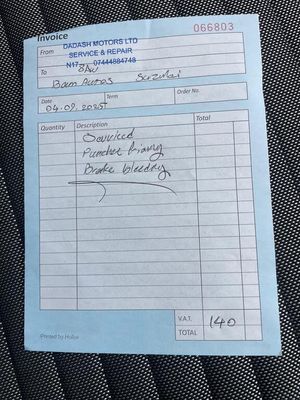 Invoice
066803
From
DADASH MOTORS LTD
SERVICE & REPAIR
N17 07444884748
To
Bam Autos Suzuki
Date
04.09.2025
Term
Order No.
Quantity Description Total
Serviced
Brake bleeding
V.A.T.
TOTAL
140
Printed by Hulux